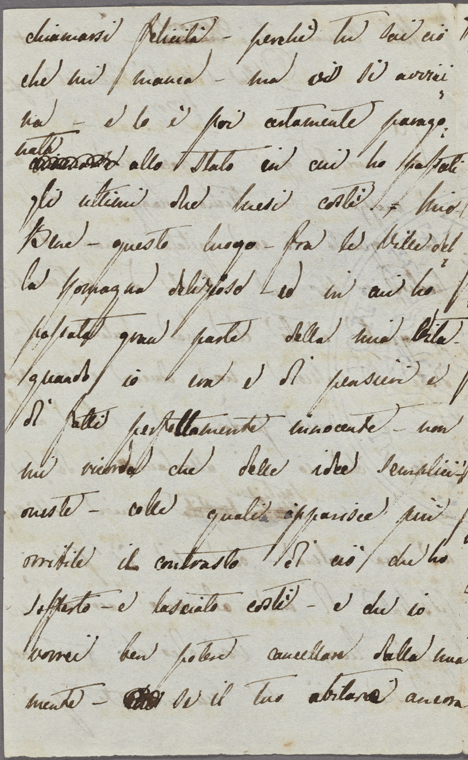 chiamarsi felicità – perchè tu sai ciò
che mi manca – ma vi si avvici
na – e lo è poi certamente parago
nata
allo stato in cui ho passati
gli ultimi due mesi costì = Mio
Bene – questo luogo – fra le Ville del
la Romagna delizioso – ed in cui ho
passata gran parte della mia Vita –
quando io era e di pensieri e
di fatti perfettamente innocente – non
mi ricorda che delle idee semplici
oneste – colle quali apparisce più
orribile il contrasto di ciò che ho
sofferto – e lasciato costì – e che io
vorrei ben potere cancellare dalla mia
mente – se il tuo abitare ancora